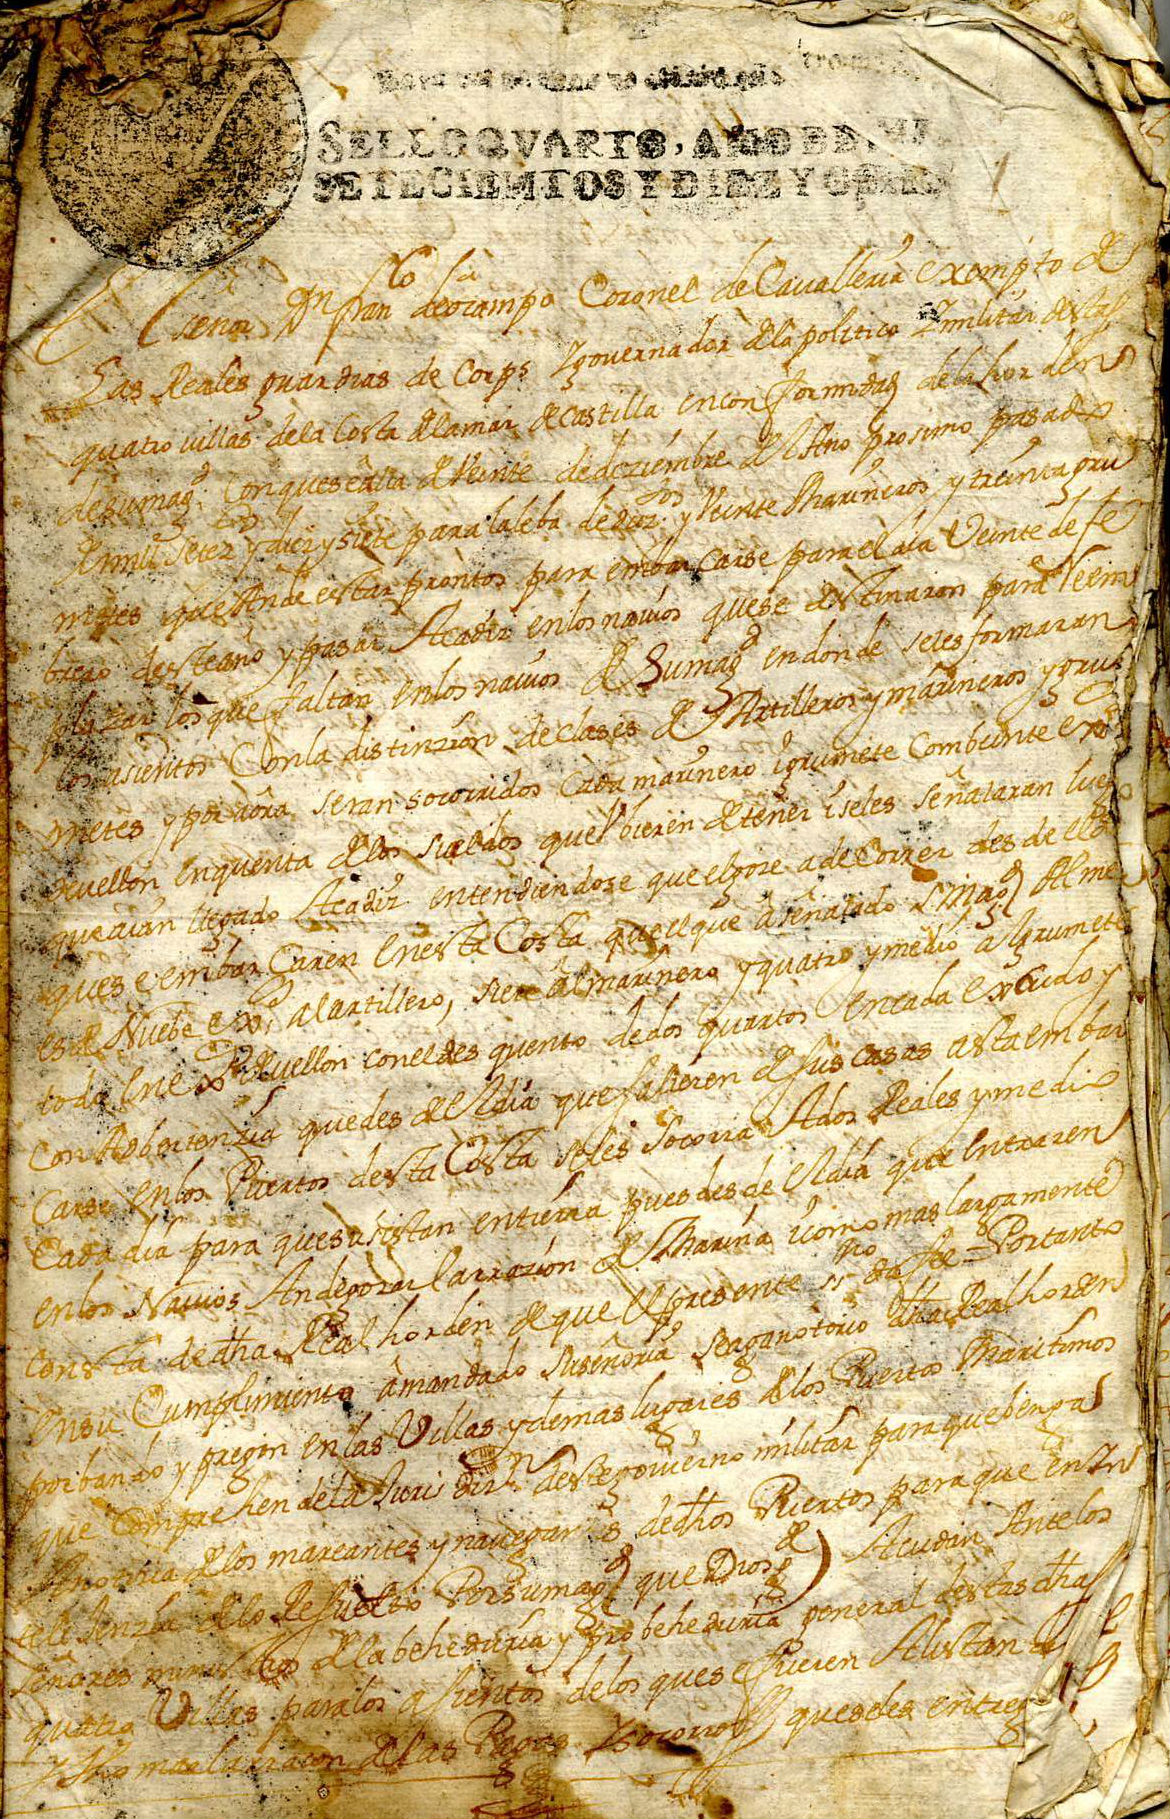 SELLO QVARTO, AÑO DE MI
SETECIENTOS Y DIEZ Y OCHO
El señor Dn fran co deocampo Coronel de Cavalleria exempto de
las Reales guardias de Corps Ygovernador de la politico Ymilitar desta
quatro uillas de la Costa de la mar de Castilla en conformidad de la horden
de su mag d Con ques carta de Veinte de deziembre del Año prosimo pasado
de mill Setez tos y diez y siete para la leba de duz tos y Veinte Marineros y treinta gru
metes que Ande estar prontos para embarcarse para el dia Veinte de fe
brero desteaño y pasar Acadiz en los nauios que se destinaron para Reem
plazar los que faltan en los nauios de Su mag d en donde se les formaran
los asientos Con la distinzion de clases de Artilleros y marineros y gru
metes y por aora seran socorridos Cada marinero Ygrumete Con beinte
de uellon en quenta de los sueldos que Vbieren de tener i se les señalaran lueg
que aian llegado Acadiz entendiendose que el goze a de Correr desde el d
que se embarCaren En esta Costa que el que a señalado S Mag d Al me
es de Nuebe al artillero, siete al marinero y quatro y medio al grumete
todo En de uellon con el des quento de dos quartos En cada escudo y
Con Adbertenzia que des de el dia que salieren de sus casas asta embar
Carse en los Puertos desta Costa se les Socorra A dos Reales y medio
Cada dia para que subsistan en tierra pues des de el dia que Entraren
en los Nauios Ande gozar la rrazion de Marina i como mas largamente
Consta de dha Real horden de que el presente ss no da fee = Por tanto
En su Cumplimiento a mandado su señoria se haga notorio dha Real horden
por bando y pregon en las Villas y demas lugares de los Puertos Maritimos
que Comprehende la Juri dizn deste gouierno militar para que benga
A noticia de los mareantes y navegantes de dhos Puertos para que en In
teli Jenzia de lo Resuelto Por su mag d que Dios g de Acudan Ante los
señores ministros de la beheduria y probeheduria general destas dhas
quatro Villas para los asientos de los que se fueren Alistando
de las Pagas Ysocorros que se les entreg